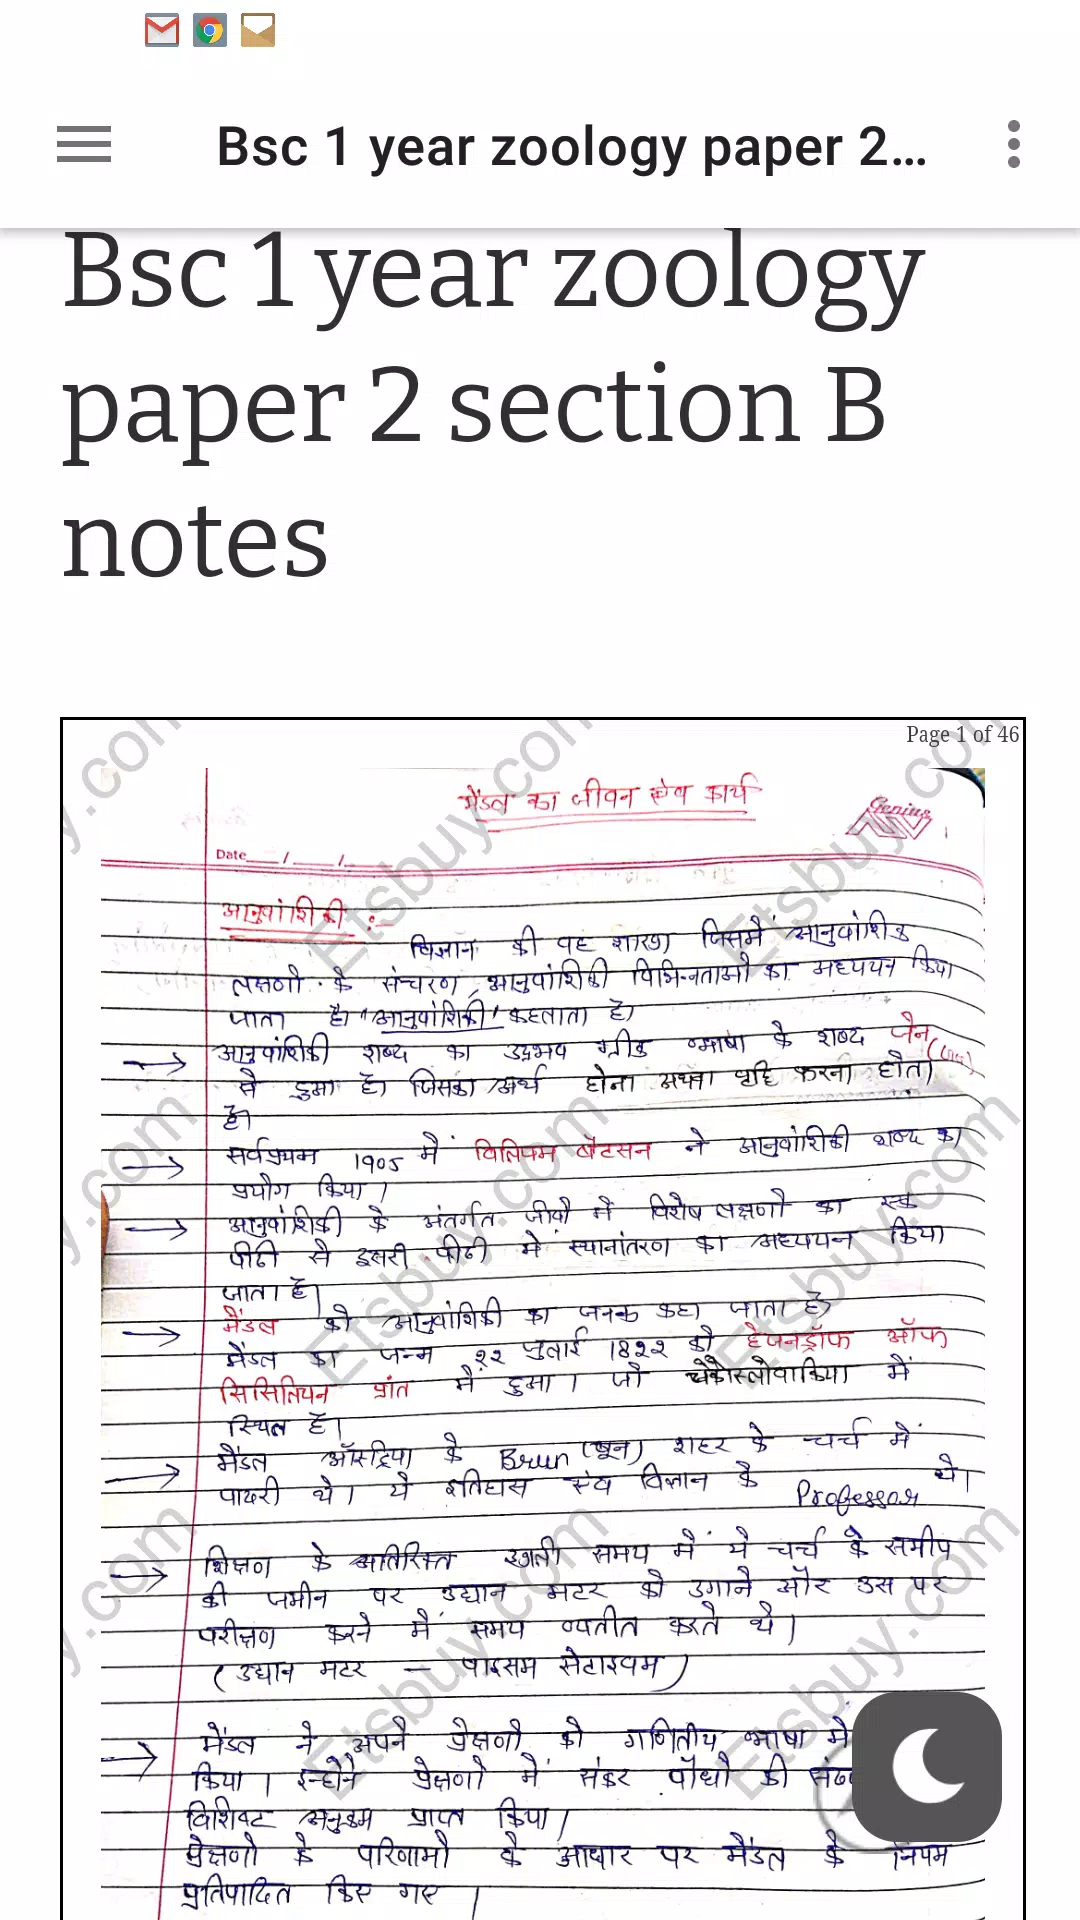 Bsc 1 year zoology paper 2...
Bsc 1 year zoology
paper 2 section B
notes
Page 1 of 46
मेंडल का जीवन एवं कार्य
Genius
1
Date___/___/___
आनुवांशिकी :-
विज्ञान की वह शाखा जिसमें आनुवांशिक
लक्षणो के संचरण, आनुवांशिकी विभिन्नताओ का अध्ययन किया
जाता है। "आनुवांशिकी" कहलाता है।
→ आनुवांशिकी शब्द का उद्रभव ग्रीक भाषा के शब्द जेन
से हुआ है। जिसका अर्थ होना अथवा वृद्दि करना होता
है।
→ सर्वप्रथम 1905 में विलियम बेटसन ने आनुवांशिकी शब्द का
प्रयोग किया।
→ आनुवांशिकी के अंतर्गत जीवो में विशेष लक्षणो का एक
पीढी से दुसरी पीढी में स्थानांतरण का अध्ययन किया
जाता है।
→ मेंडल को आनुवांशिकी का जनक कहा जाता है
मेंडल का जन्म २२ जुलाई 18२२ को हेजनड्रॉफ ऑफ
सिसिलियन प्रांत में हुआ। जो चेकोस्लोवाकिया में
स्थित है।
→ मेंडल ऑस्ट्रिया के Brun (ब्रून) शहर के चर्च में
पादरी थे। ये इतिहास एंव विज्ञान के Professor थे।
→ शिक्षण के अतिरिक्त समय में ये चर्च के समीप
की जमीन पर उद्यान मटर को उगाने और उस पर
परीक्षण करने में समय व्यतीत करते थे।
( उद्यान मटर — पाइसम सेटाइवम )
→ मेंडल ने अपने प्रेक्षणो को गणितीय भाषा में
किया। इन्होंने प्रेक्षणो में संकर पौधों की
विशिष्ट अनुक्रम प्राप्त किया।
प्रेक्षणो के परिणामो के आधार पर मेंडल के नियम
प्रतिपादित किए गए।
Etsbuy.com